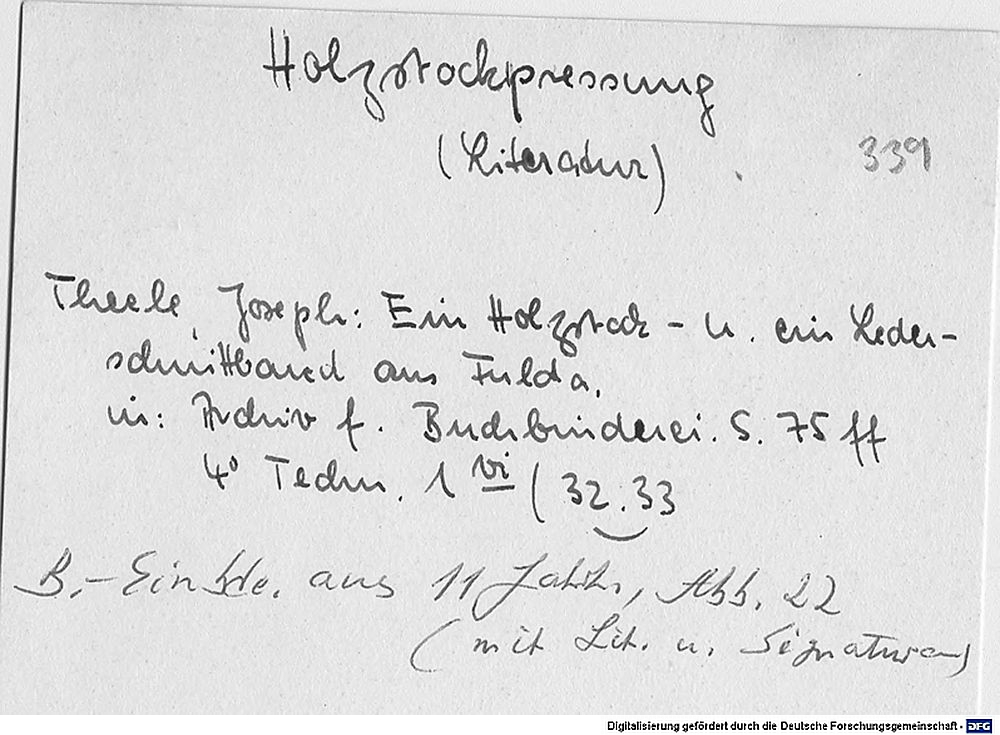 Holzstockpressung
(Literatur)
339
Theele, Joseph: Ein Holzstock- u. ein Leder-
schnittband aus Fulda,
in: Archiv f. Buchbinderei. S. 75 ff
4° Techn. 1 vi (32.33
B.-Einbde. aus 11 Jahrh., Abb. 22
(mit Lit. u. Signaturen)
Digitalisierung gefördert durch die Deutsche Forschungsgemeinschaft - DFG